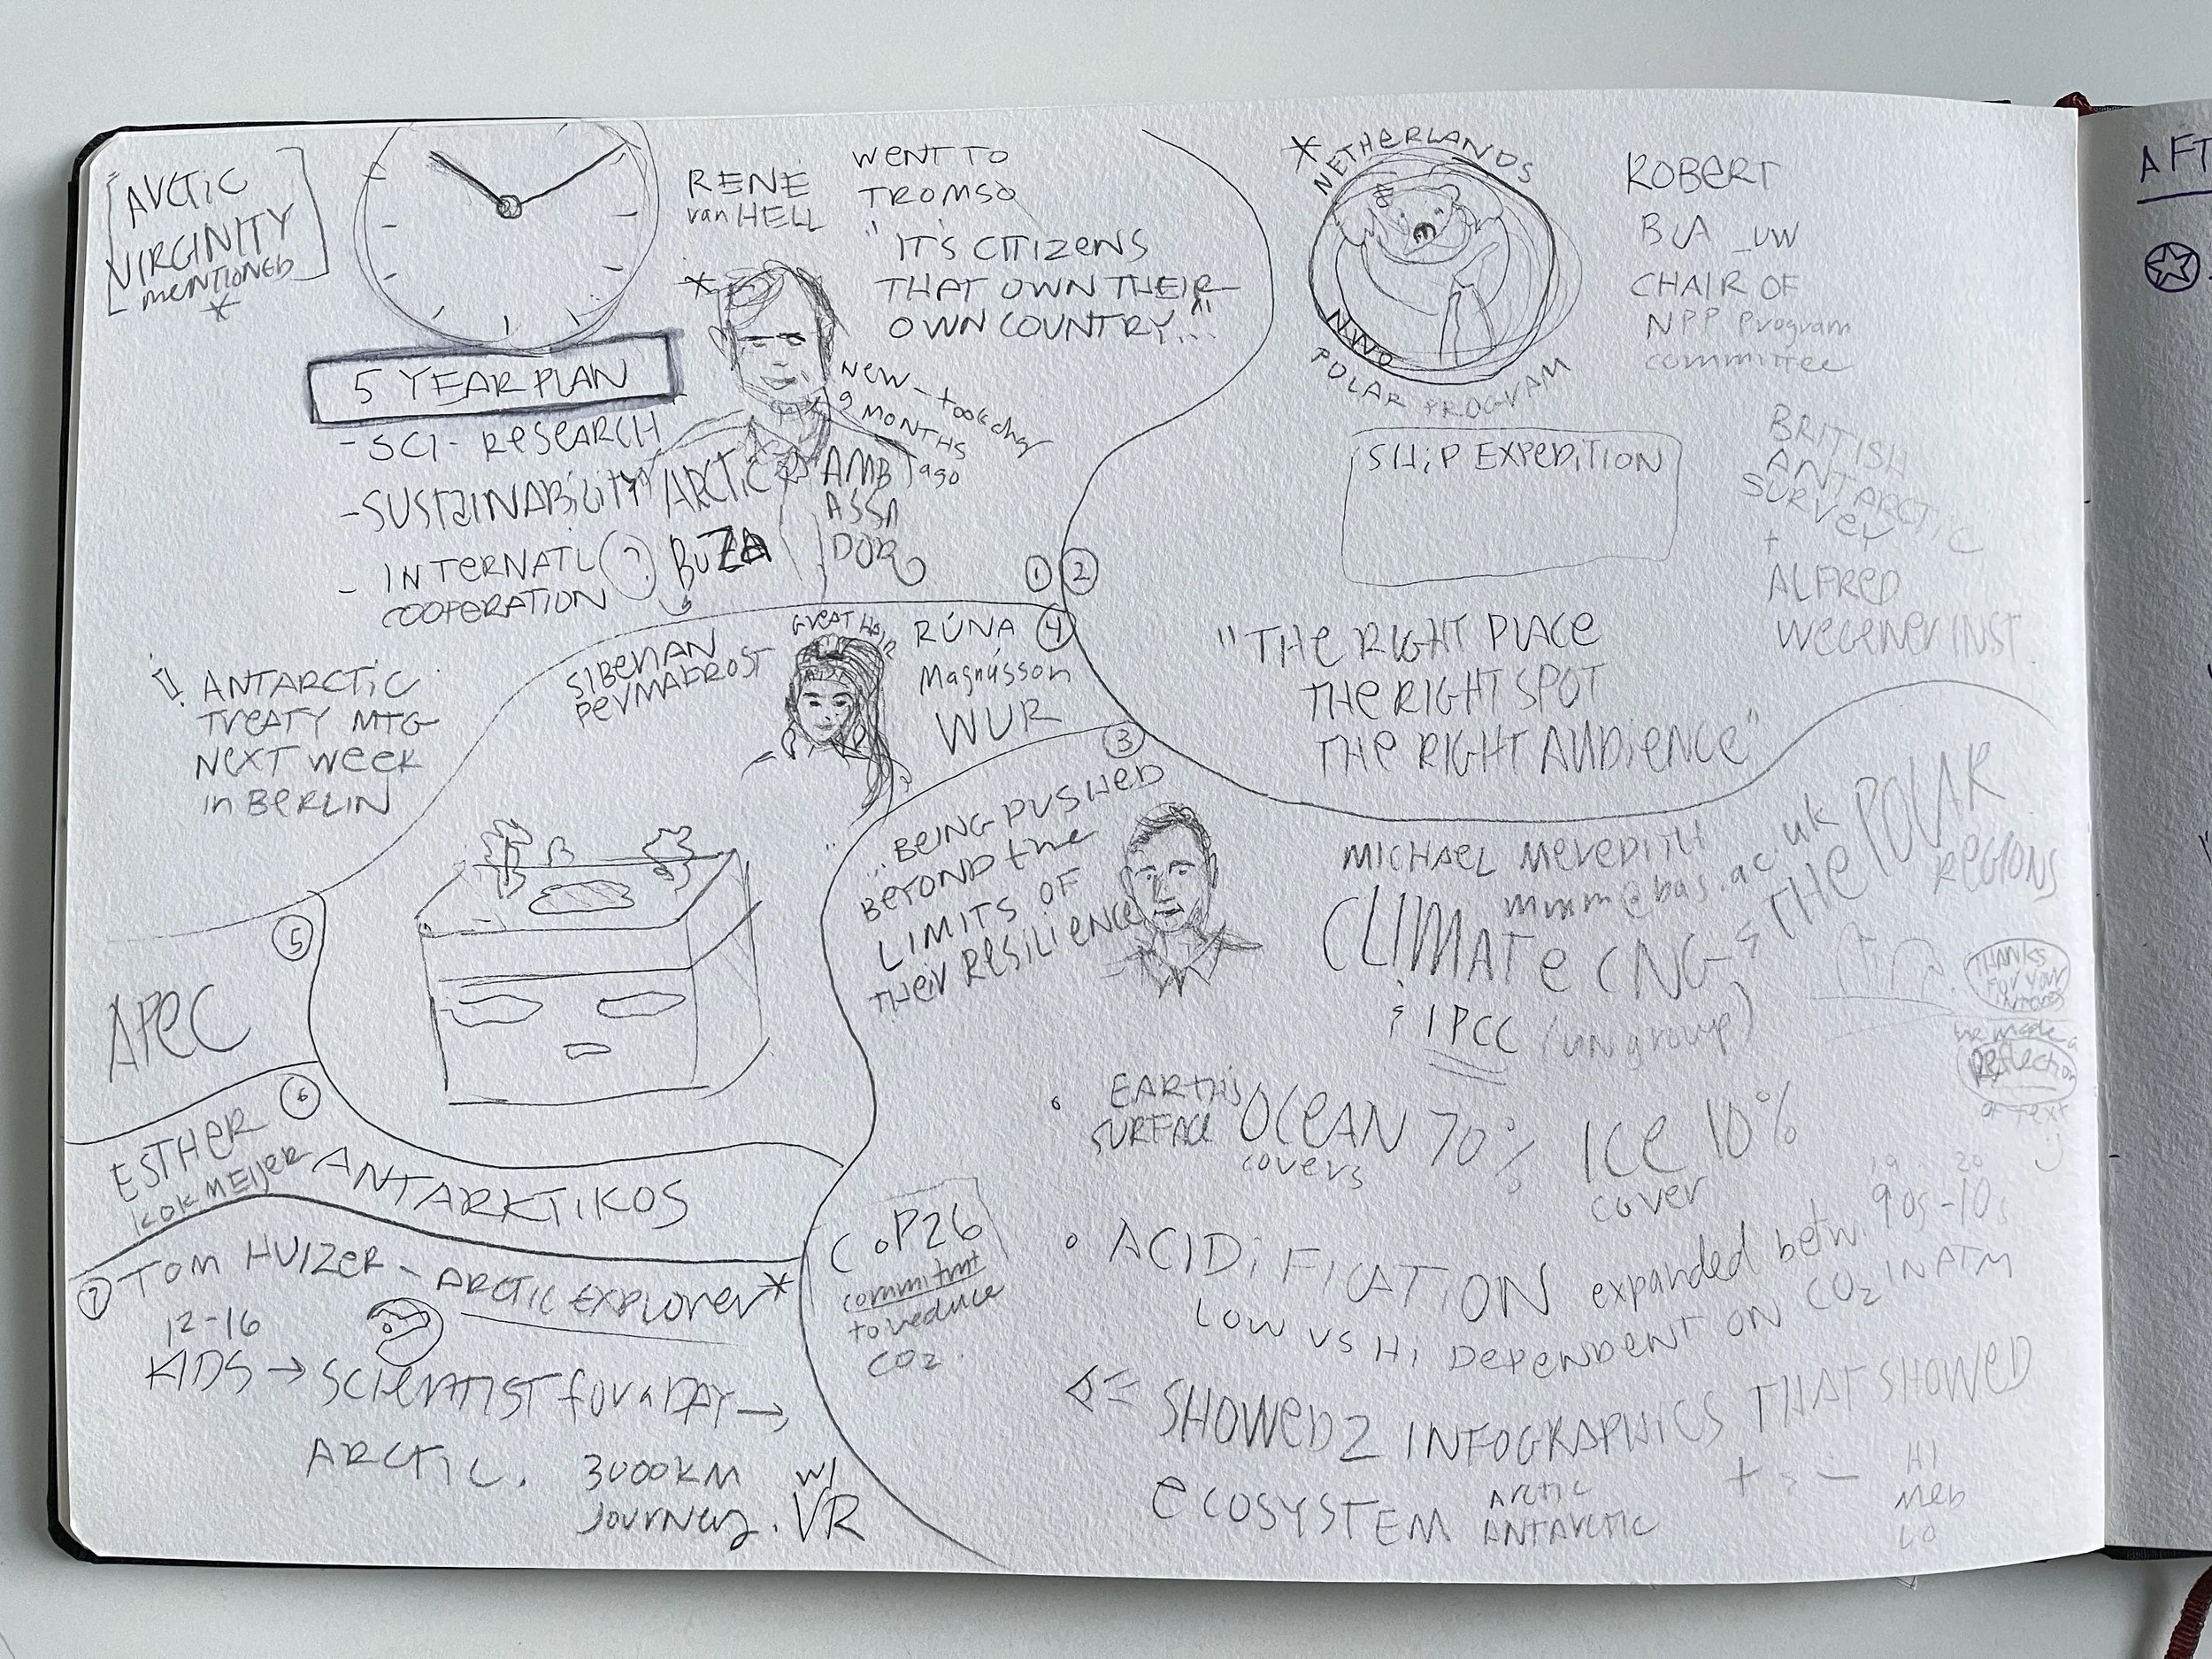 [ARCTIC
VIRGINITY
MENTIONED]
*
RENÉ
van HELL
WENT TO
TROMSO
"IT'S CITIZENS
THAT OWN THEIR
OWN COUNTRY..."
*
5 YEAR PLAN
- SCI- RESEARCH
- SUSTAINABILITY
- INTERNATL
COOPERATION
NEW - took chg
9 MONTHS
ago
ARCTIC
AMB
ASSA
DOR
? BUZA
! ANTARCTIC
TREATY MTG
NEXT WEEK
in BERLIN
1
2
* NETHERLANDS
NWO
POLAR PROGRAM
ROBERT
UW
CHAIR OF
NPP Program
committee
SHIP EXPEDITION
BRITISH
ANTARCTIC
SURVEY
+
ALFRED
WEGENER INST.
"THE RIGHT PLACE
THE RIGHT SPOT
THE RIGHT AUDIENCE"
4
SIBERIAN
PERMAFROST
GREAT HAIR
RÚNA
Magnússon
WUR
3
"...BEING PUSHED
BEYOND the
LIMITS OF
their RESILIENCE
MICHAEL MEREDITH
mmm@bas.ac.uk
CLIMATE CNG & THE POLAR
REGIONS
& IPCC (un group)
THANKS
FOR YOUR
we made a
Reflection
of text
• EARTH'S
SURFACE
OCEAN 70% ICE 10%
covers
cover
19 20
• ACIDIFICATION expanded betw. 90s-10s
LOW vs Hi DEPENDENT ON CO2 IN ATM
SHOWED 2 INFOGRAPHICS THAT SHOWED
ECOSYSTEM
ARCTIC
ANTARCTIC
+ & -
HI
MED
LO
COP26
commitmt
to reduce
CO2.
5
APEC
6
ESTHER
KOKMEIJER
ANTARKTIKOS
7 TOM HUIZER - ARCTIC EXPLORER*
12-16
KIDS → SCIENTIST for a DAY →
ARCTIC. 3000KM
JOURNEY. W/
VR
AFT